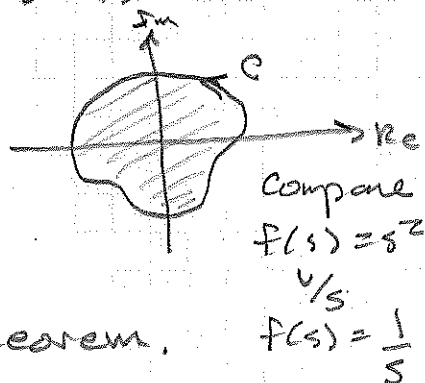 Im
C
Re
Compare
f(s) = s²
v/s
f(s) = 1/s
eorem.